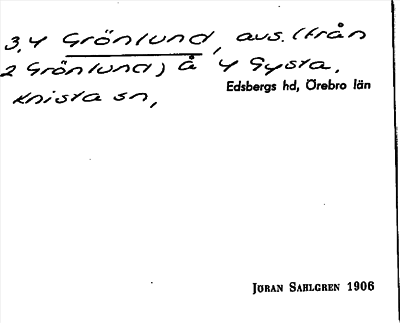 3,4 Grönlund, avs. (från
2 Grönlund) å 4 Gysta,
Knista sn,
Edsbergs hd, Örebro län
JÖRAN SAHLGREN 1906